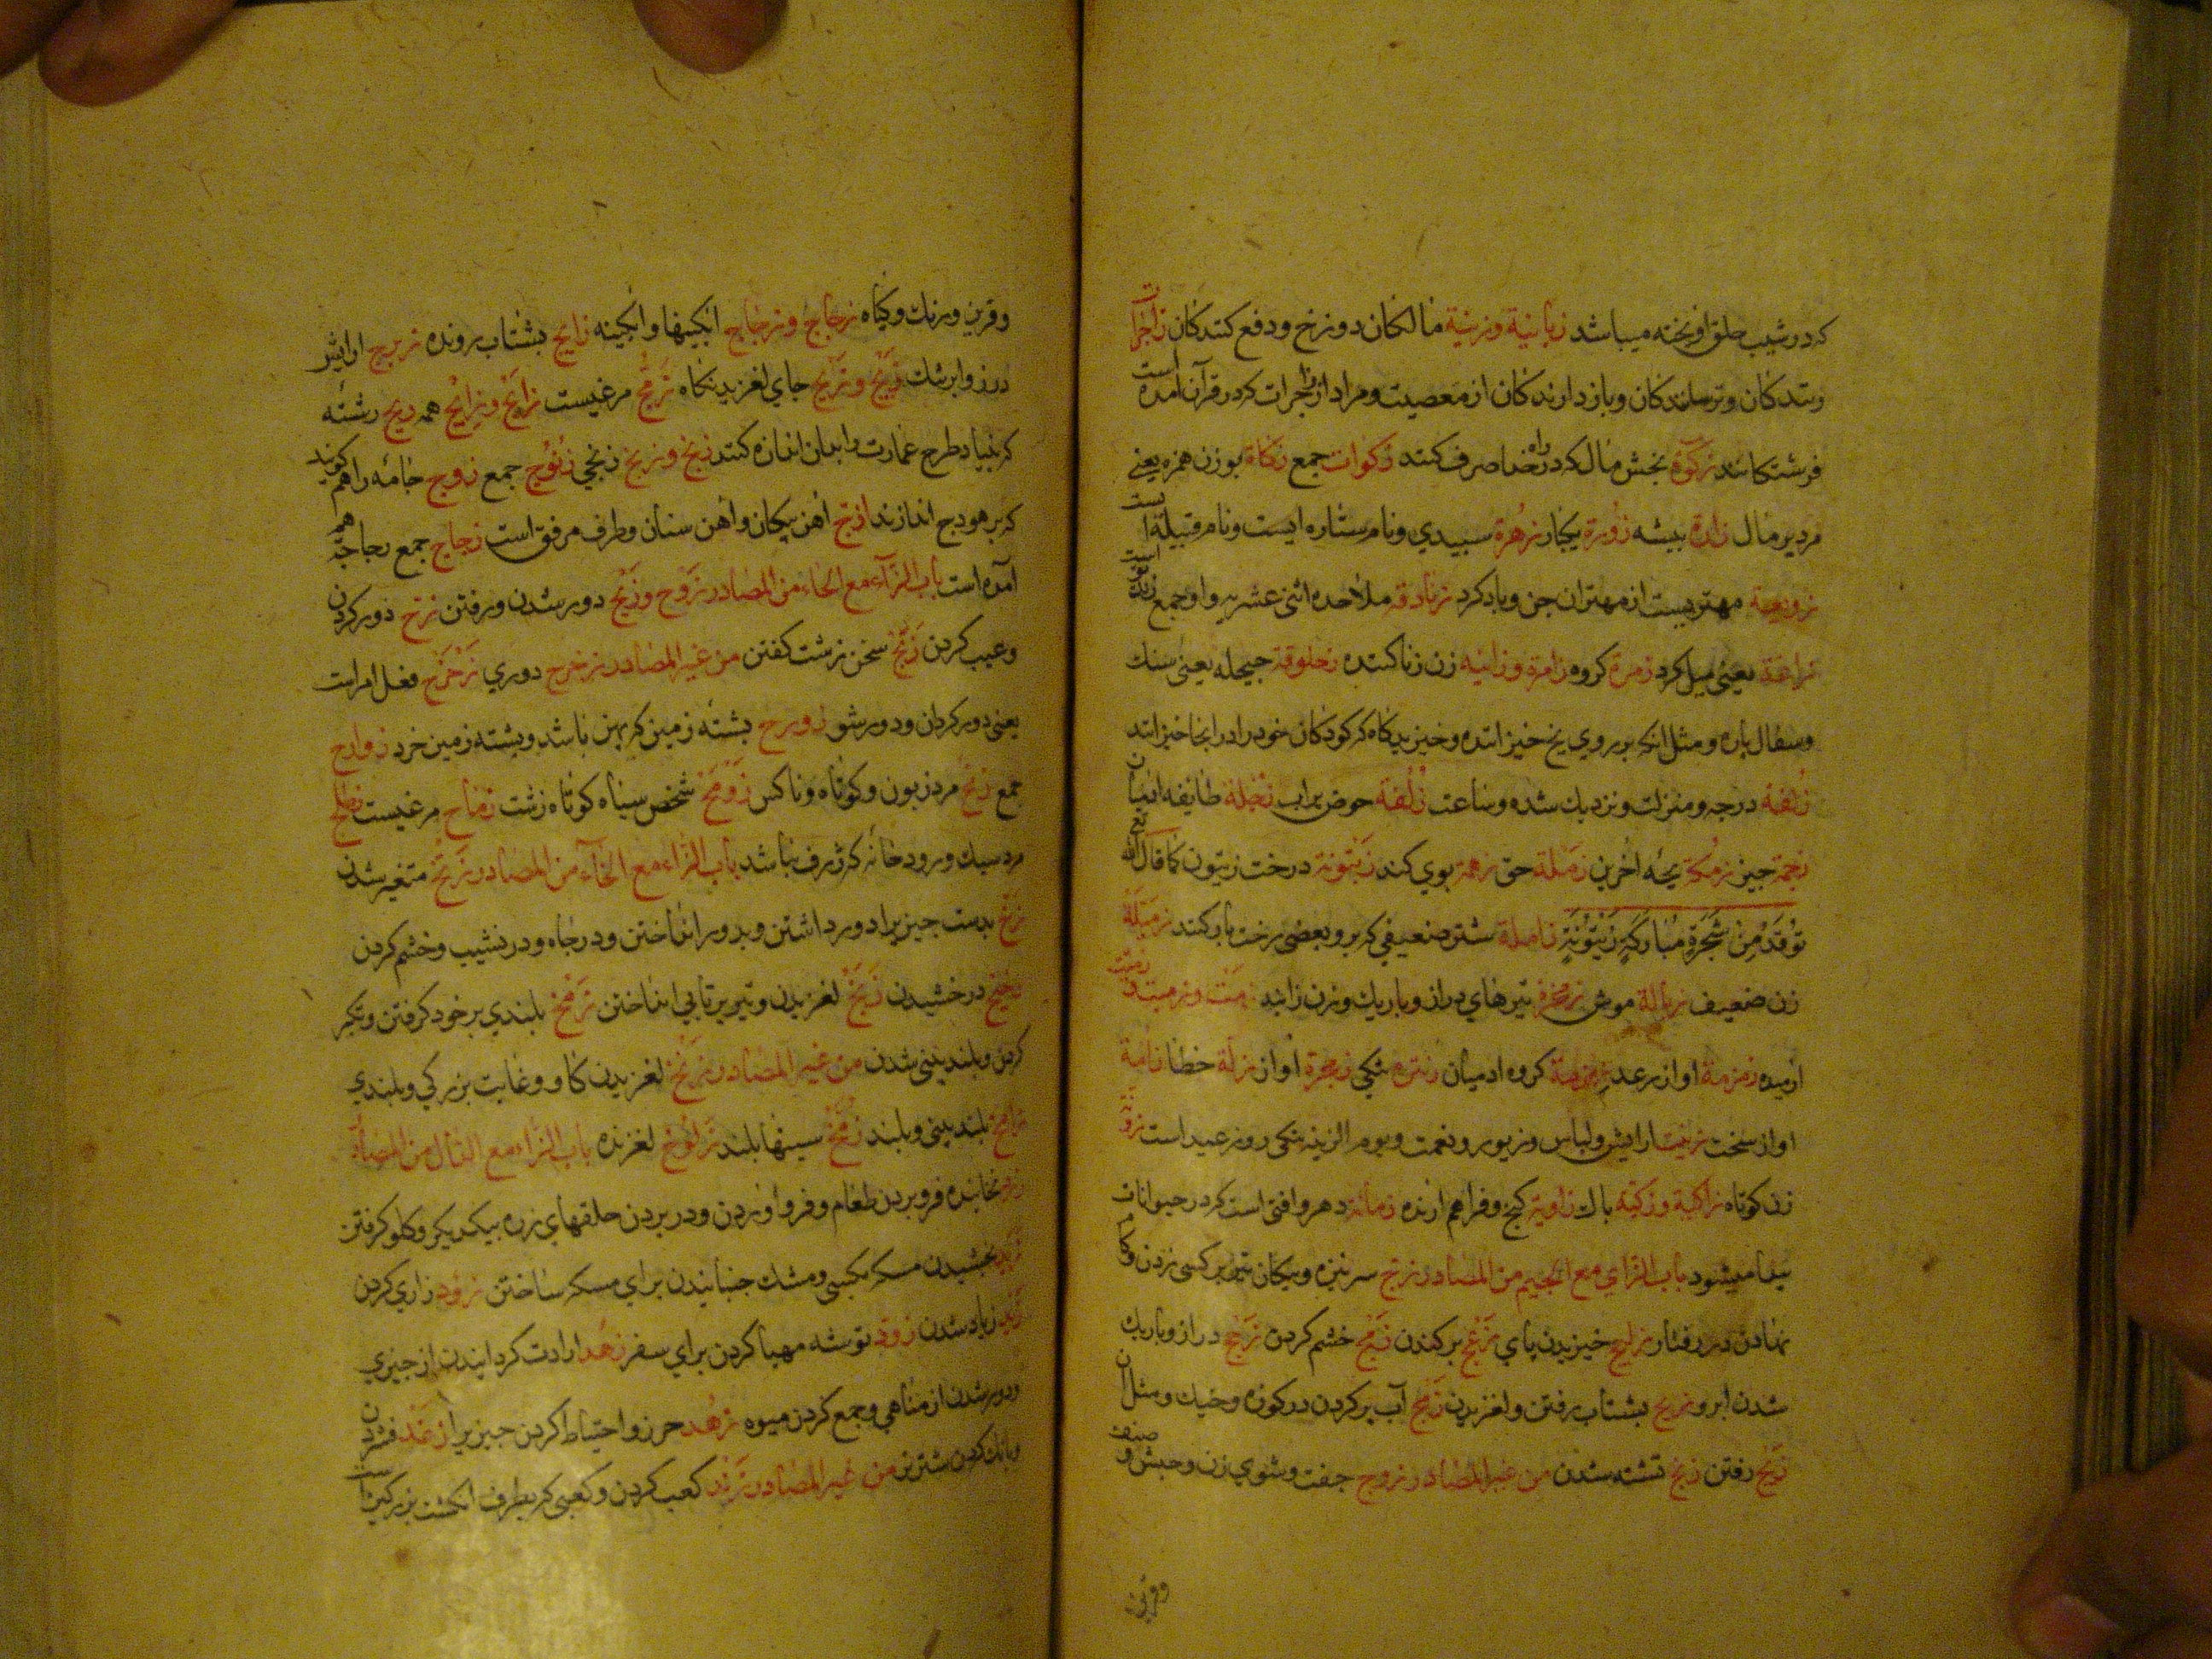 که در شیب حلق اویخته میباشد زبانیة وزبنیة مالکان دوزخ ودفع کنندکان زاجرات
رنندکان وترسانندکان وبازدارندکان از معصیت ومراد از زاجرات که در قرآن آمده است
فرشتکانند زکوة بخش مال که در راه خدا صرف کنند زکوات جمع زکاة بوزن همزه یعنی
مردیر مال زارة بیشه زورة یکبار زهرة سبیدی ونام ستاره ایست ونام قبیلهٔ است
زوبعة مهتریست از مهتران جن وباد کرد زنادقه ملاحده اثنی عشریه واو جمع زندیق است
زاغة یعنی میل کرد زمرة کروه زامرة وزانیه زن زنا کننده زحلوقة جیجله یعنی سنك
وسفال پاره ومثل انکه بر روی یخ خیزانند وخیزیدکاه که کودکان خود را در انجا خیزانند
زلفة درجه ومنزلت ونزدیك شده وساعت زلفة حوض پر اب زجلة طایفه انسان
زجمة چیز زمکة بچهٔ اخرین زمنلة حق زهمة بوی کند زیتونة درخت زیتون کما قال الله تع
توقد من شجرة مبارکة زیتونة زاملة شتر ضعیفی که برو بعضی رخت بار کنند زمیلة
زن ضعیف زبالة موش زمخرة تیرهای دراز وباریك وزن زاینده زمت وزمیت
ارمیده زمزمة اواز رعد زمزمة کروه ادمیان تنکی زمجرة اواز زلة خطا زامة
اواز سخت زینت ارایش ولباس وزیور ونعمت ویوم الزینه بنکی روز عید است
زن کوتاه زاکیة وزکیه پاك زاویة کنج وفراهم ارنده زمانة دهر وافتی است که در حیوانات
پیدا میشود باب الزای مع الجیم من المصادر زج سر نیزه وپیکان تیر بر کسی زدن وکام
نهادن در رفتار زلج خیزیدن پای زعج بر کندن زمج خشم کردن زجج دراز وباریك
شدن ابرو زلیج بشتاب رفتن ولغزیدن زنج آب پر کردن در کوزه وخیك ومثل ان
زلج رفتن زنج تشنه شدن من غیر المصادر زوج جفت وشوی زن وجنس و صنف
وقرین
وقرین ورنك وکیاه زجاج وزجاج ابکینها وابکینه زالج بشتاب رونده زبرج ارایش
در زر وابر تنك زلج وزلج جای لغزیدنکاه زمج مرغیست زامج وزامج همه زیج رشتهٔ
که بنیاد طرح عمارت را بدان اندازه کنند زنج وزنج زنجی زنوج جمع زوج جامه را هم کویند
که بر هودج اندازند ازج آهن پیکان وآهن سنان وطرف مرفق است زجاج جمع زجاجه هم
آمده است باب الزآء مع الحاء من المصادر زوح وزیح دور شدن ورفتن زح دور کردن
وعیب کردن زبح سخن زشت کفتن من غیر المصادر زحزح دوری زحزح فعل امر است
یعنی دور کردان ودور شو زورح بشتهٔ زمین که پهن باشد وبشته زمین خرد زوارح
جمع زمح مرد زبون وکوتاه وناکس زومح شخص سیاه کوتاه زشت زماح مرغیست زحلح
مرد سبك ورودخانه که ژرف نباشد باب الزاء مع الخآء من المصادر زنخ متغیر شدن
زخ بدست چیزی را دور داشتن وبدور انداختن ودر چاه ودر نشیب وخشم کردن
زخیخ درخشیدن زلخ لغزیدن وتیر پرتابی انداختن زمخ بلندی بر خود کرفتن وتکبر
کردن وبلند بینی شدن من غیر المصادر زلخ لغزیدن کاو وغایت بزرکی وبلندی
زامخ بلند بینی وبلند زمخ سینها بلند زلوخ لغزنده باب الزاء مع الدال من المصادر
زرد نخاییده فرو بردن طعام وفرو اوردن ودر بردن حلقهای زره بیکدیکر وکلو کرفتن
زبد بخشیدن مسکه بکسی ومشك جنبانیدن برای مسکه ساختن زؤد زاری کردن
زید زیاد شدن زود توشه مهیا کردن برای سفر زهد ارادت کردانیدن از چیزی
ودور شدن از مناهی وجمع کردن میوه زهد حرز واحتیاط کردن چیزی را زغد فشردن
وبانك کردن شتر نر من غیر المصادر زند کعب کردن وکعبی که بطرف انکشت بزرکین است